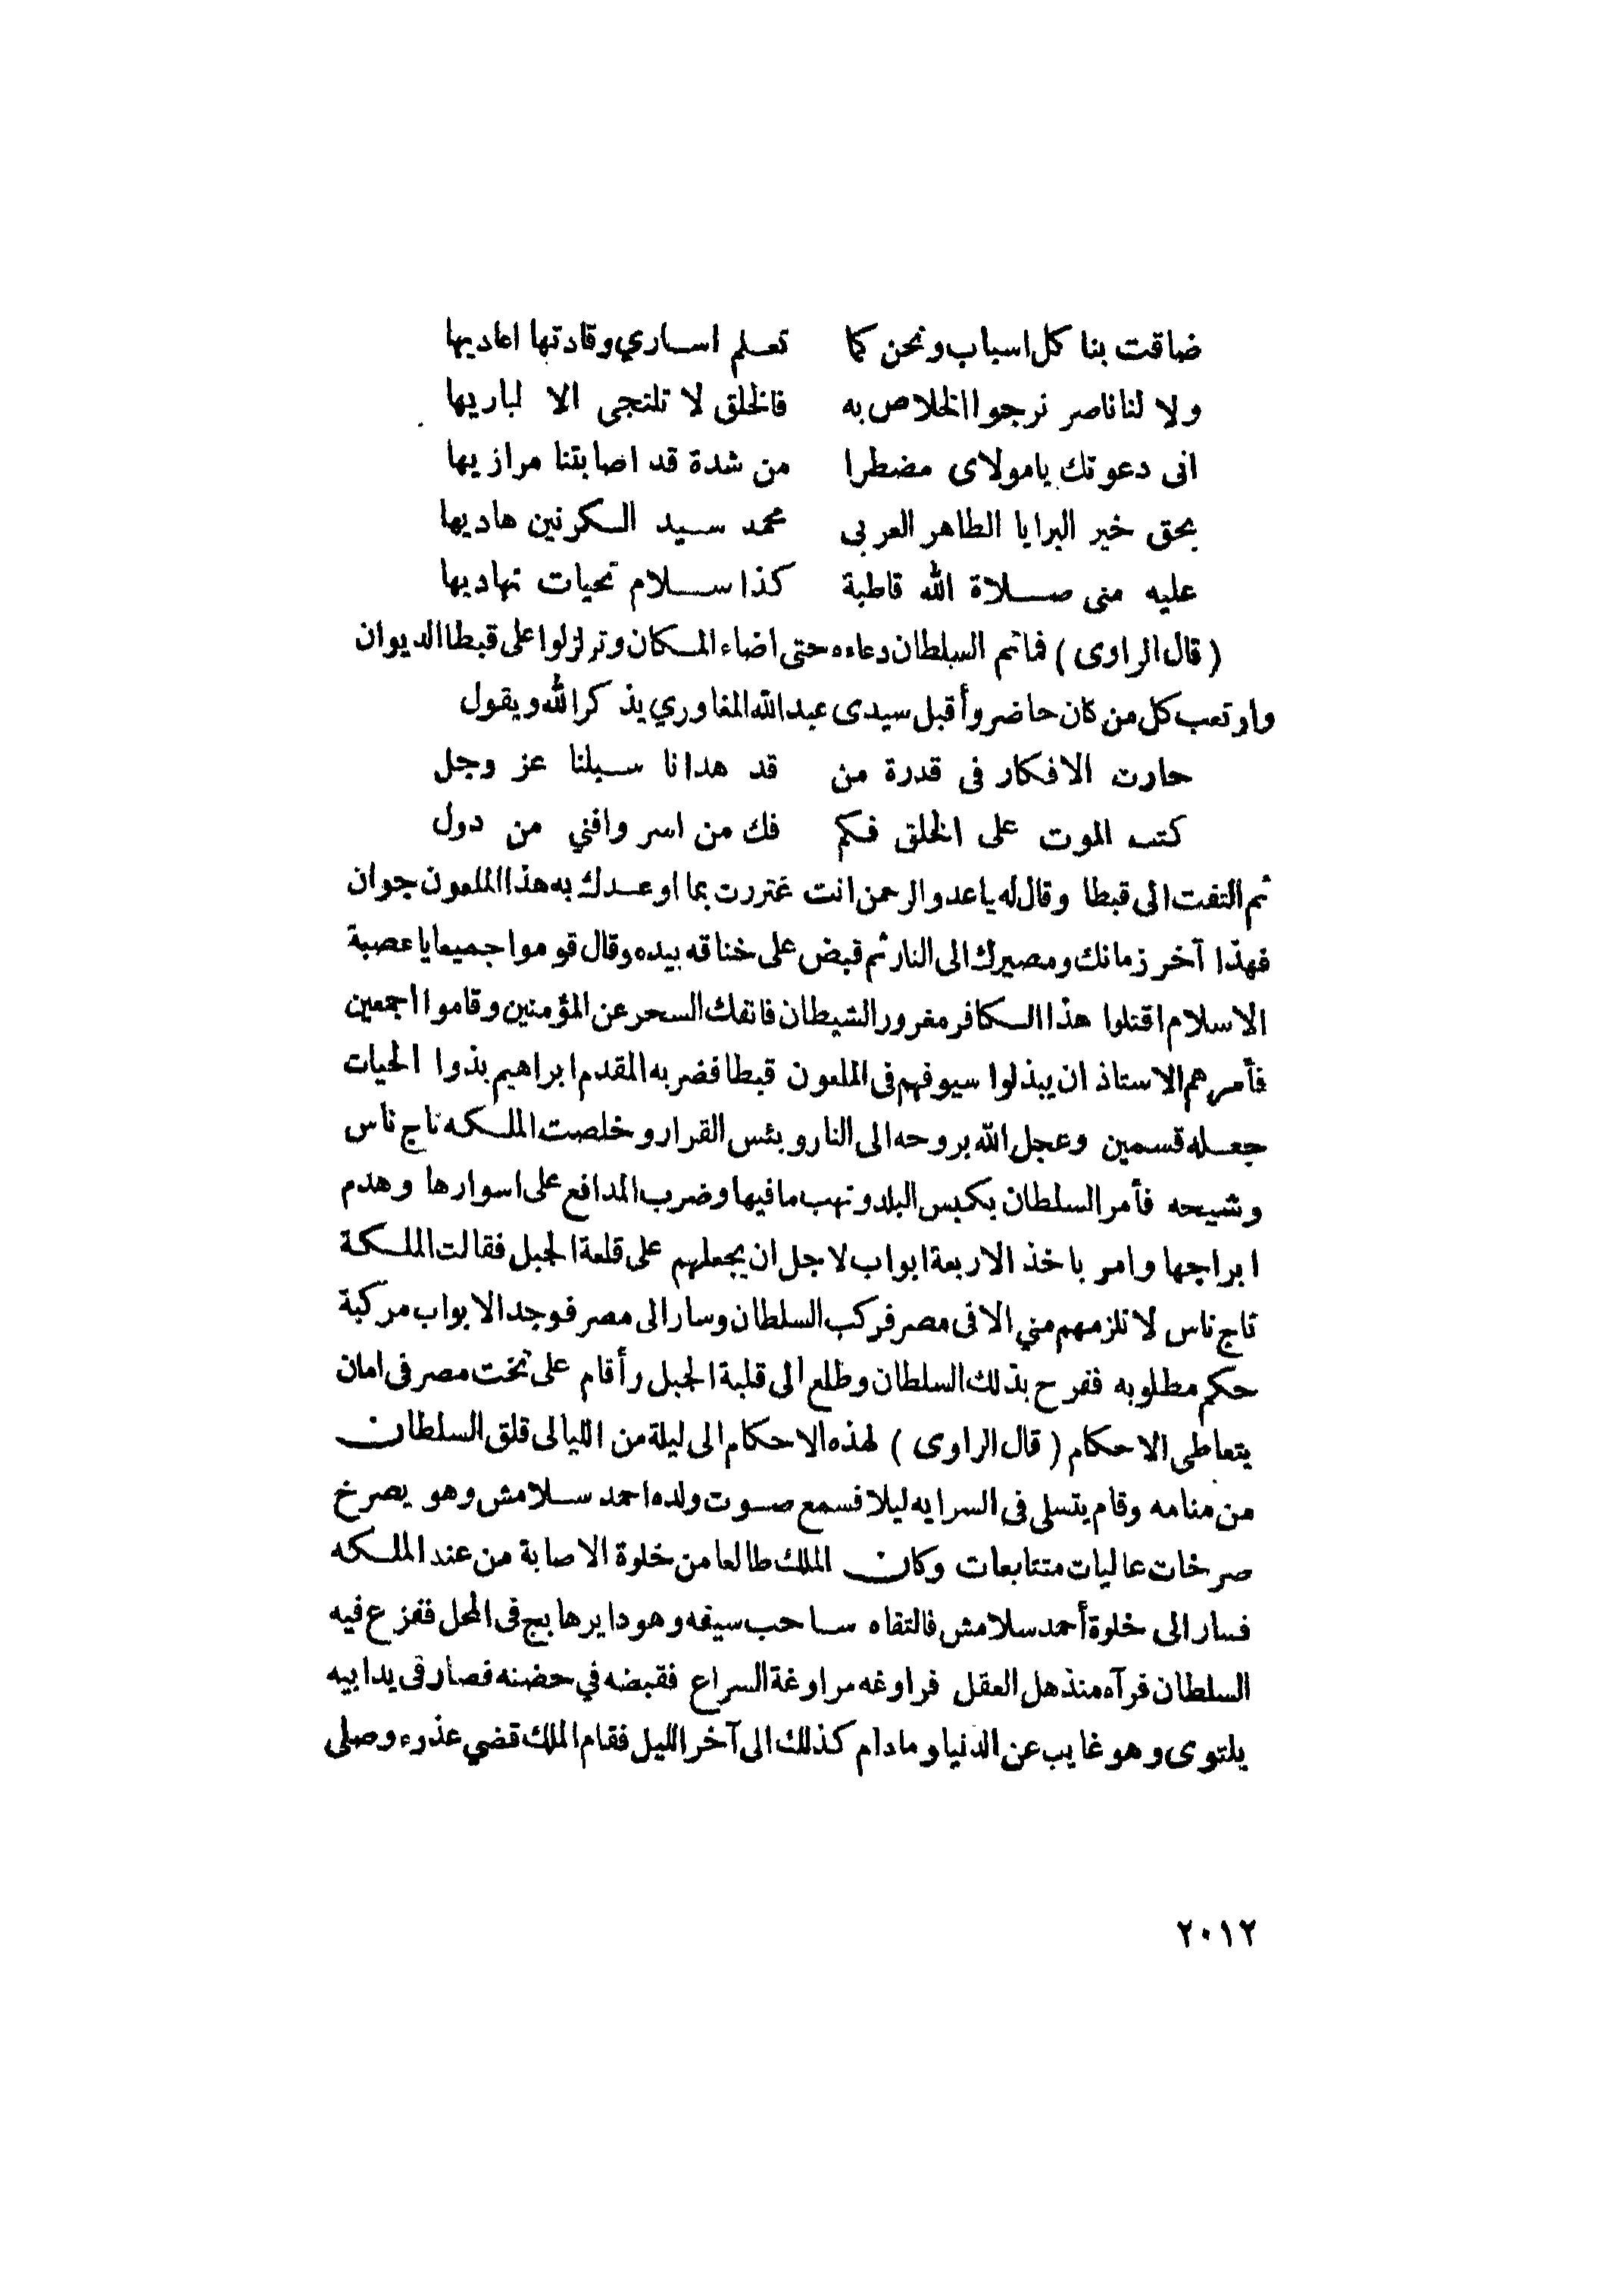 ضاقت بنا كل اسباب ونحن كما تعلم اساري وقادتها اعاديها
ولا لنا ناصر نرجوا الخلاص به فالخلق لا تلتجى الا لباريها
انى دعوتك يامولاى مضطرا من شدة قد اصابتنا مرازيها
بحق خير البرايا الطاهر العربى محمد سيد الكرنين هاديها
عليه منى صلاة الله قاطبة كذا سلام تحيات تهاديها
( قال الراوى ) فما تم السلطان دعاءه حتى اضاء المكان وتزلزلوا على قبطا الديوان
وارتعب كل من كان حاضر وأقبل سيدى عبد الله المغاوري يذكر الله ويقول
حارت الافكار فى قدرة من قد هدانا سبلنا عز وجل
كتب الموت على الخلق فكم فك من اسر وافني من دول
ثم التفت الى قبطا وقال له ياعدو الرحمن انت غتررت بما اوعدك به هذا الملعون جوان
فهذا آخر زمانك ومصيرك الى النار ثم قبض على خناقه بيده وقال قوموا جميعا يا عصبة
الاسلام اقتلوا هذا الكافر مغرور الشيطان فانفك السحر عن المؤمنين وقاموا اجمعين
فأمرهم الاستاذ ان يبذلوا سيوفهم فى الملعون قبطا فضربه المقدم ابراهيم بذوا الحيات
جعله قسمين وعجل الله بروحه الى النار وبئس القرار وخلصت الملكه تاج ناس
وشيحه فأمر السلطان بكبس البلد ونهب مافيها وضرب المدافع على اسوارها وهدم
ابراجها وامر باخذ الاربعة ابواب لاجل ان يجعلهم على قلعة الجبل فقالت الملكة
تاج ناس لا تلزمهم مني الا فى مصر فركب السلطان وسار الى مصر فوجد الابواب مركبة
حكم مطلوبه ففرح بذلك السلطان وطلع الى قلبة الجبل رأقام على تخت مصر فى امان
يتعاطى الاحكام ( قال الراوى ) لهذه الاحكام الى ليلة من الليالى قلق السلطان
من منامه وقام يتسلى فى السرايه ليلا فسمع صوت ولده احمد سلامش وهو يصرخ
صرخات عاليات متتابعات وكان الملك طالعا من خلوة الاصابة من عند الملكه
فسار الى خلوة أحمد سلامش فالتقاه ساحب سيفه وهو داير هابج فى المحل ففزع فيه
السلطان فرآه منذهل العقل فراوغه مراوغة السراع فقبضه في حضنه فصار فى يد ابيه
يلتوى وهو غايب عن الدنيا ومادام كذلك الى آخر الليل فقام الملك قضي عذره وصلى
٢٠١٢